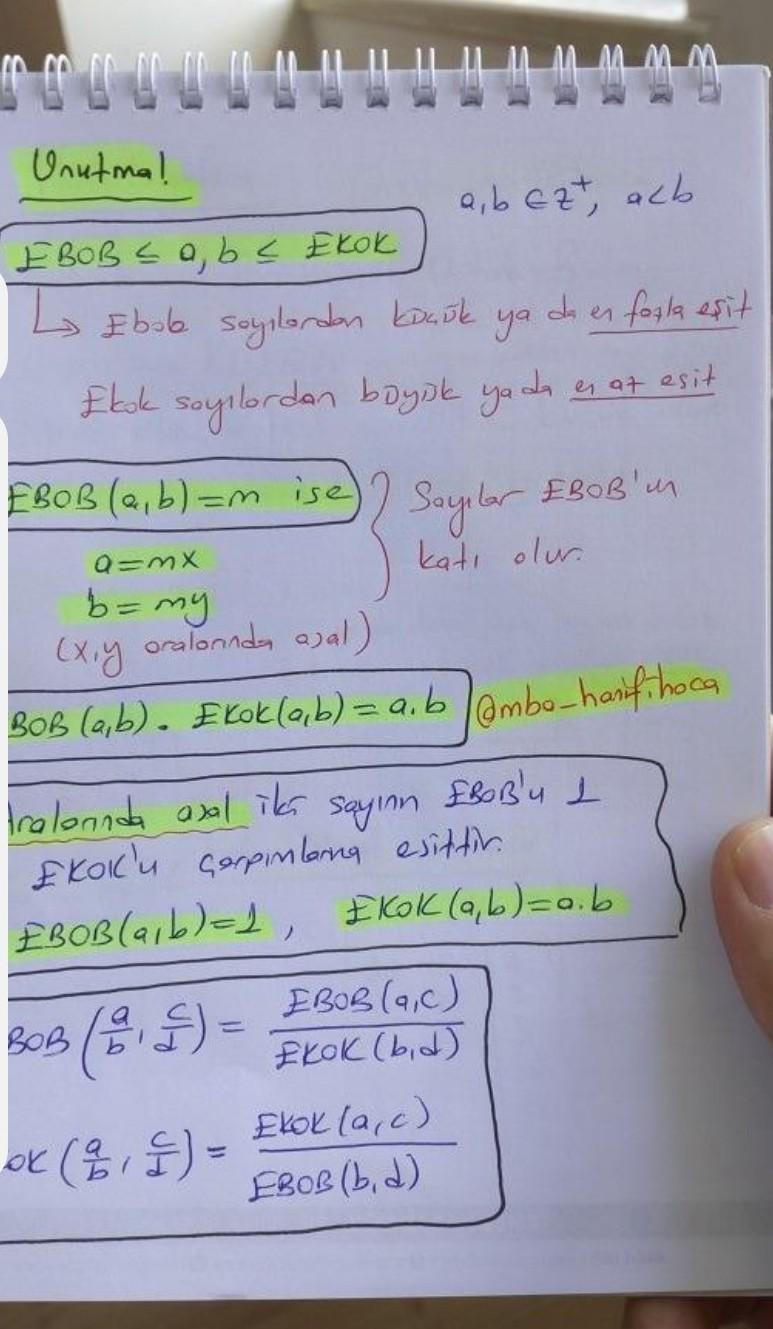 Unutma!
a,b ∈ Z⁺, a<b
EBOB ≤ a,b ≤ EKOK
↳ Ebob sayılardan küçük ya da en fazla eşit
Ekok sayılardan büyük ya da en az eşit
EBOB(a,b)=m ise
a=mx
b=my
(x,y aralarında asal)
} Sayılar EBOB'un
katı olur.
BOB(a,b). EKOK(a,b)=a.b
@mba_hanif.hoca
Aralarında asal iki sayının EBOB'u 1
EKOK'u çarpımlarına eşittir.
EBOB(a,b)=1, EKOK(a,b)=a.b
BOB(a/b, c/d) = EBOB(a,c)/EKOK(b,d)
OK(a/b, c/d) = EKOK(a,c)/EBOB(b,d)